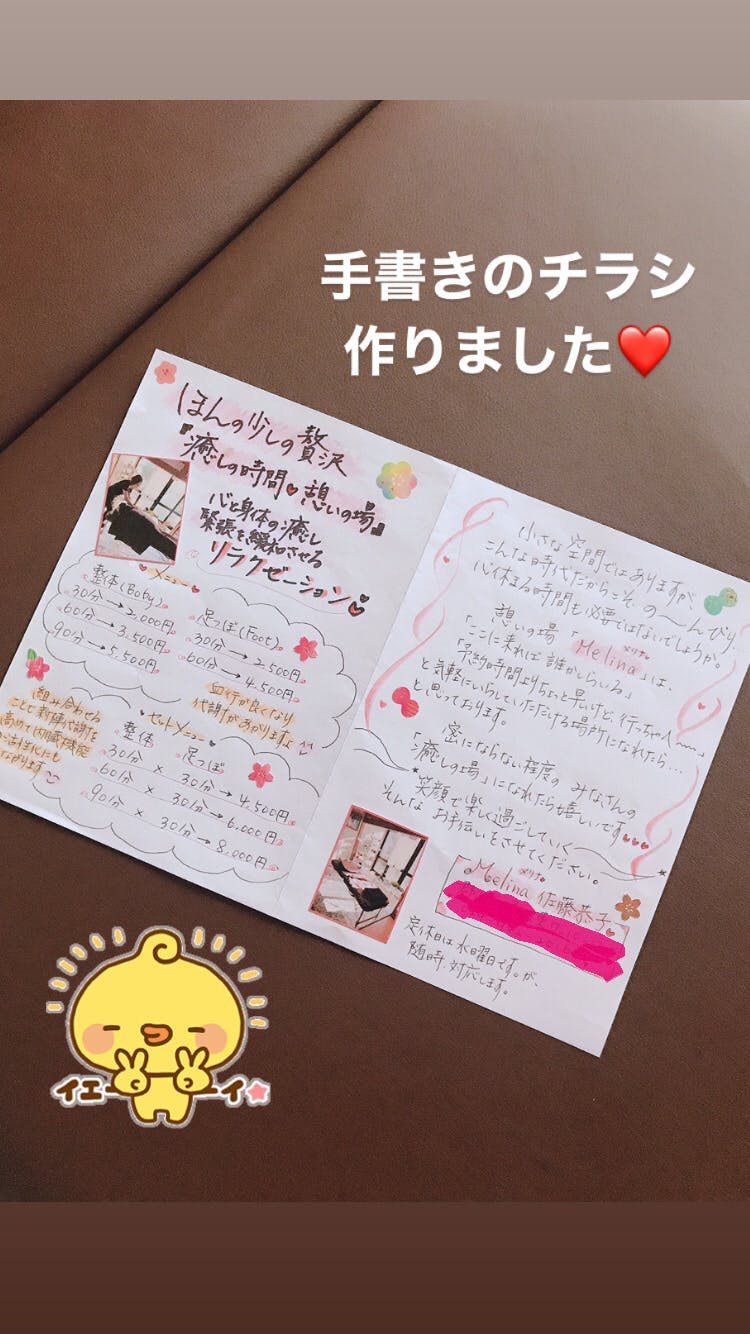 手書きのチラシ
作りました❤️
ほんの少しの贅沢
『癒しの時間♥憩いの場』
心と身体の癒し
緊張を緩和させる
リラクゼーション
メニュー
整体(Body)
30分→2,000円
60分→3,500円
90分→5,500円
足つぼ(Foot)
30分→2,500円
60分→4,500円
血行が良くなり
代謝があがりますよ
セットメニュー
組み合わせる
ことで新陳代謝を
高めて内臓機能
活性化にも
ながります
整体 足つぼ
30分×30分→4,500円
60分×30分→6,000円
90分×30分→8,000円
小さな空間ではありますが、
こんな時代だからこそ、の〜んびり
心休まる時間も必要ではないでしょうか。
憩いの場「Melina」は、
メリナ
「ここに来れば誰かしらいる」
「予約時間よりちょと早いけど、行っちゃえ〜」
と気軽にいらしていただける場所になれたら…
と思っております。
密にならない程度の みなさんの
「癒しの場」になれたら嬉しいです♥♥♥
笑顔で楽しく過ごしていく
そんな お手伝いをさせてください。
メリナ
Melina 佐藤恭子
定休日は水曜日です。が、
随時、対応します。
イエーイ